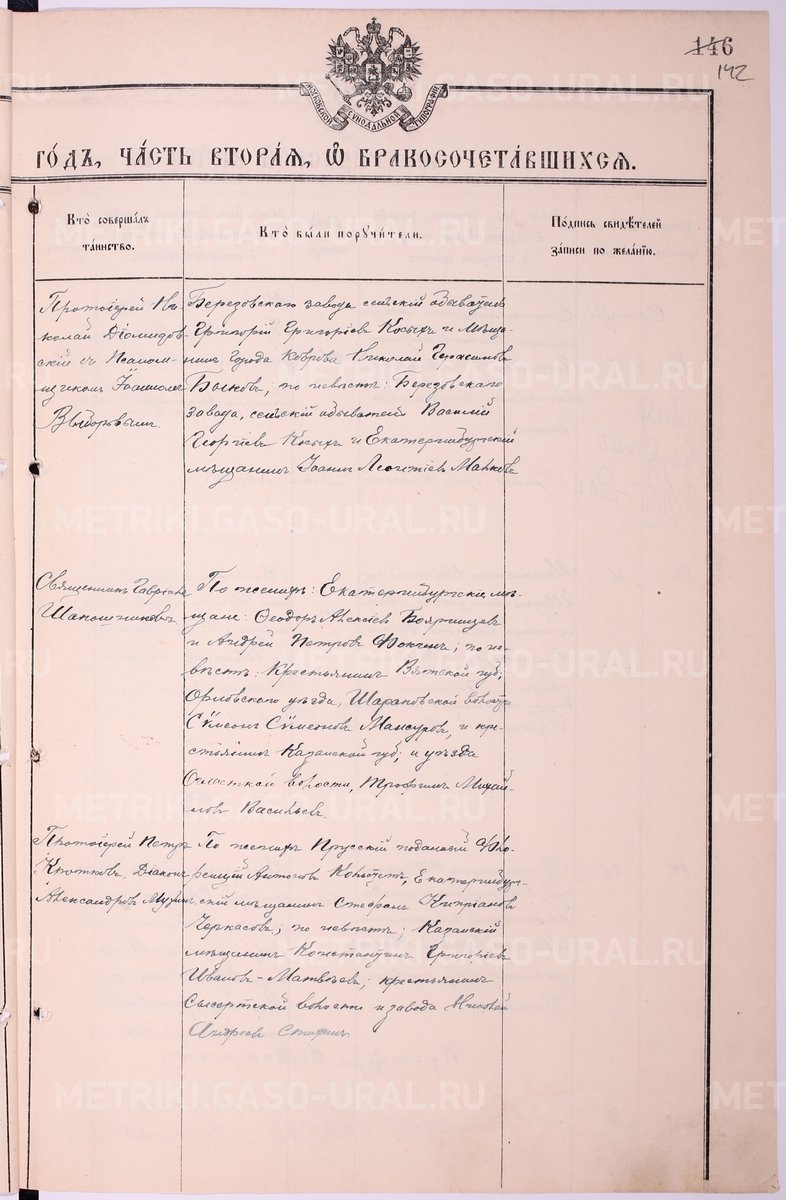 146
142
МОСКОВСКОЙ СѴНОДАЛЬНОЙ ТИПОГРАФІИ
ГО́ДЪ, ЧА́СТЬ ВТОРА́Я, Ѡ҆ БРАКОСОЧЕТА́ВШИХСЯ.
Кто̀ соверша́лъ
та́инство.
Кто̀ бы́ли порꙋчи́тели.
По́дпись свидѣ́телей
за́писи по жела́нїю.
Протоіерей Ни-
колай Діомидов-
скій съ Псалом-
щикомъ Іоанномъ
Березовскаго завода сельскій обыватель
Григорій Григоріевъ Косыхъ и Мѣща-
нинъ города Коврова Николай Герасимовъ
Быковъ, по невѣстѣ: Березовскаго
завода, сельскій обыватель Василій
Георгіевъ Косыхъ и Екатеринбургскій
мѣщанинъ Іоаннъ Леонтіевъ Малковъ
Священникъ Гавріилъ
Шапошниковъ
По женихѣ: Екатеринбургскіе мѣ-
щане: Ѳеодоръ Алексіевъ Бояршиновъ
и Андрей Петровъ Фокинъ; по не-
вѣстѣ: Крестьянинъ Вятской губ;
Орловскаго уѣзда, Шарановской волости
Сѵмеонъ Сѵмеоновъ Мансуровъ, и кре-
стьянинъ Казанской губ; и уѣзда
волости, Трофимъ Михай-
ловъ Васильевъ.
Протоіерей Петръ
Діаконъ
Александровъ Мухинъ
По женихѣ Прусскій поданный Фло-
ренцій Антоновъ Екатеринбург-
скій мѣщанинъ Стефанъ Кипріановъ
Черкасовъ; по невѣстѣ: Казанскій
мѣщанинъ Константинъ Григоріевъ
Ивановъ-Матвѣевъ; крестьянинъ
Сысертской волости и завода Николай
Андреевъ
METRIKI.GASO-URAL.RU